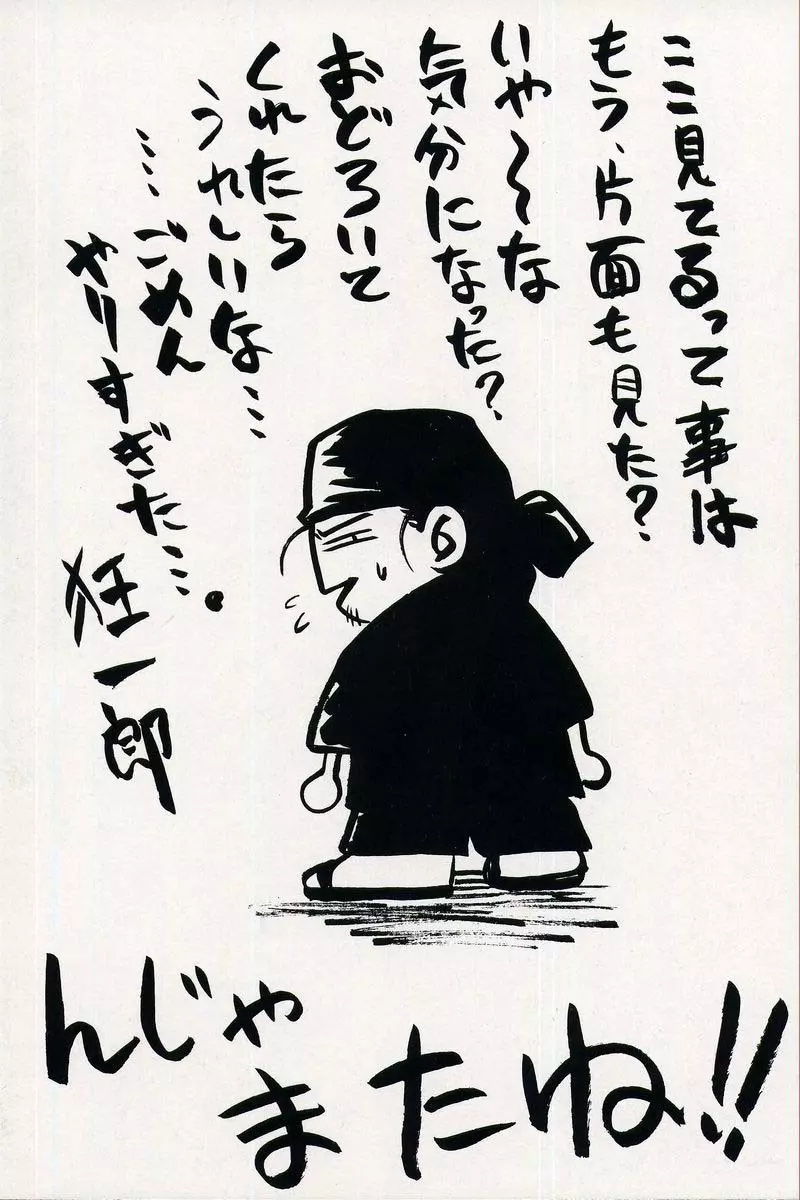 ここ見てるって事は
もう、片面も見た?
いや〜な
気分になった?
おどろいて
くれたら
うれしいな…
…ごめん
やりすぎた…。
狂一郎
んじゃ
またね!!